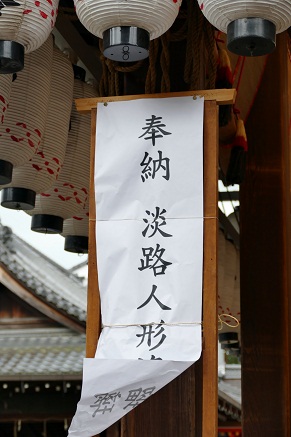 奉納 淡路人形